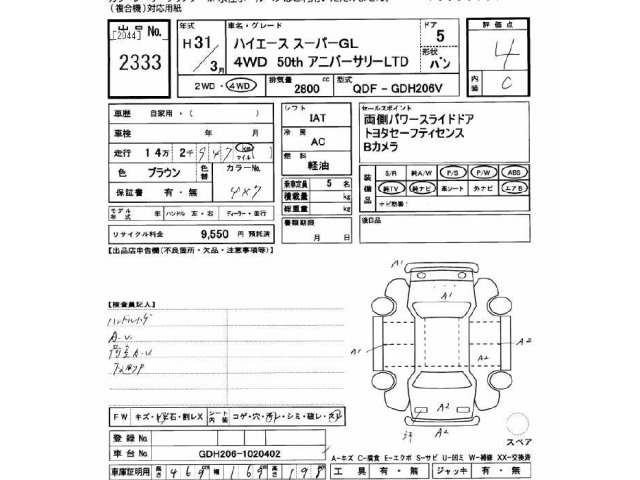 (複合機)対応用紙
出品 No.
[2044]
2333
年式
H 31/3月
車名・グレード
ハイエース スーパーGL
4WD 50th アニバーサリーLTD
ドア
5
形状
バン
評価点
4
内装
C
2WD・4WD
排気量
2800 cc
型式
QDF - GDH206V
車歴 自家用・( )
車検 年 月
走行 14万 2千 947 km マイル ( )
色 ブラウン
色替
カラーNo.
4X7
保証書 有・無
モデル年式 年 ハンドル 左・右 ディーラー・並行
リサイクル料金 9,550 円 預託済
シフト
IAT
冷房
AC
燃料
軽油
乗車定員 5 名
積載量 kg
総重量 kg
書類期限
月 日
セールスポイント
両側パワースライドドア
トヨタセーフティセンス
Bカメラ
装備品
S/R 純A/W P/S P/W ABS
純TV 純ナビ 革シート 外ナビ エアB
ナビ型番:
後日品
【出品店申告欄(不良箇所・欠品・注意事項等)】
[検査員記入]
A.U.
A1
A1
A1
A2
A2
A2
A2
A2
スペア
FW キズ・ヒ飛石・割レX
シート内装 コゲ・穴・汚レ・シミ・破レ・スレ
登録 No.
車台 No. GDH206-1020402
A-キズ C-腐食 E-エクボ S-サビ U-凹ミ W-補修 XX-交換済
車庫証明用 長さ 469 cm 幅 169 cm 高さ 198 cm
工具 有・無 ジャッキ 有・無